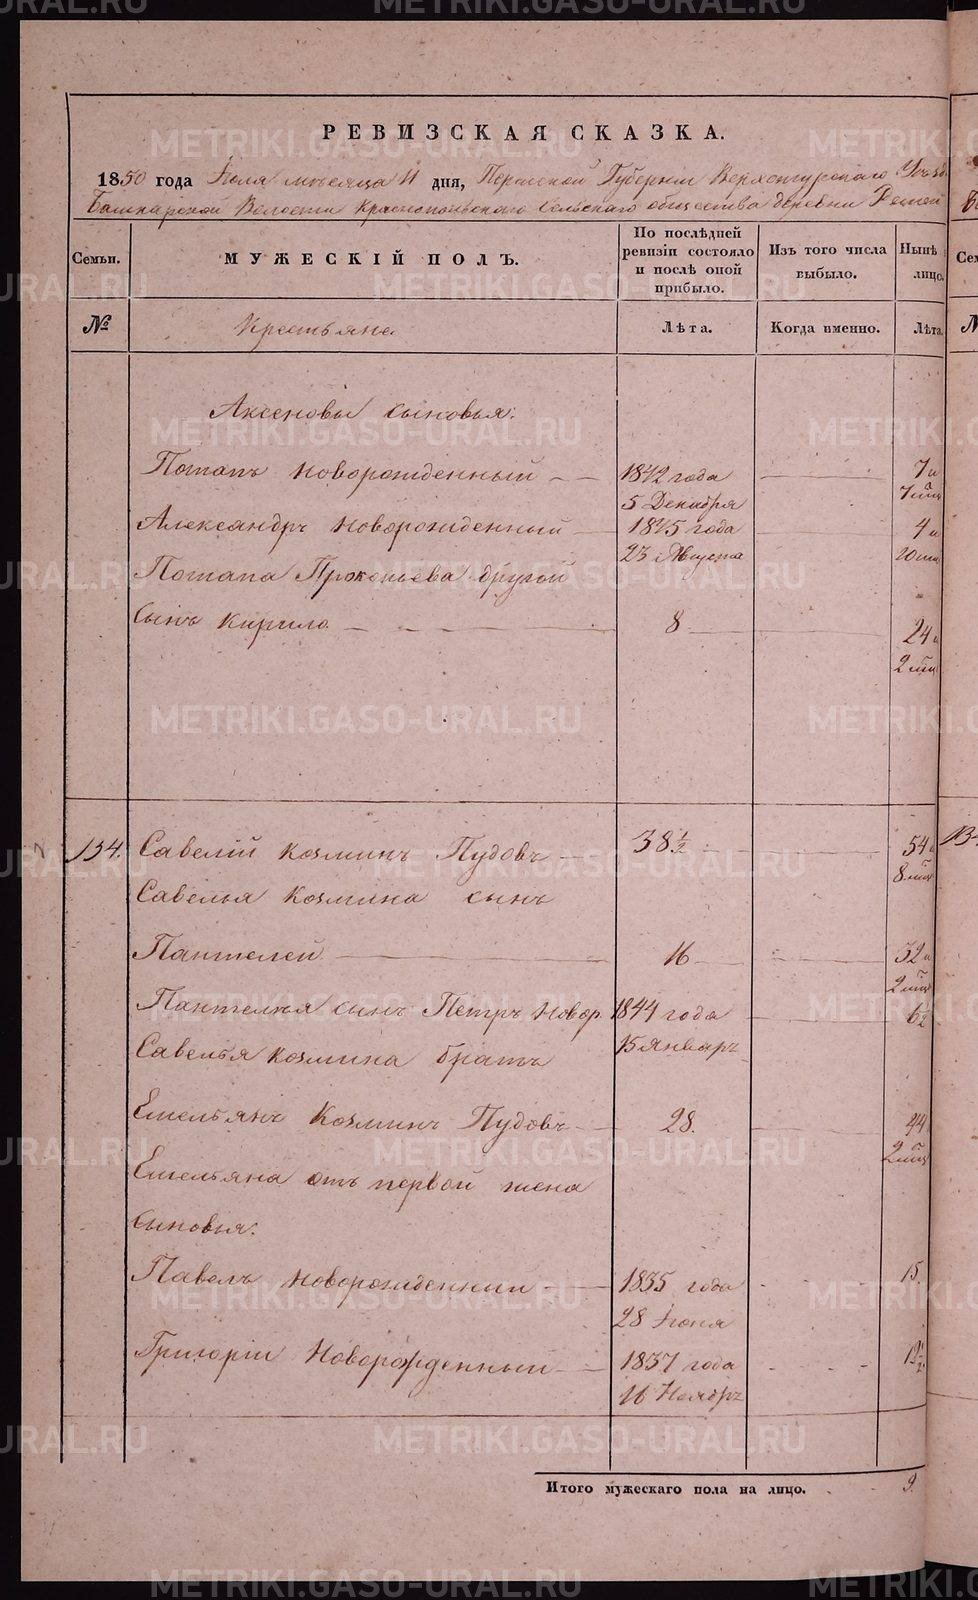 РЕВИЗСКАЯ СКАЗКА.
1850 года Июля месяца 11 дня, Пермской Губернии Верхотурскаго Уезда
Башкарской Волости Краснопольскаго Сельскаго общества деревни
Семьи.
МУЖЕСКІЙ ПОЛЪ.
По послѣдней ревизіи состояло и послѣ оной прибыло.
Изъ того числа выбыло.
Нынѣ на лицо.
№
Крестьяне
Лѣта.
Когда именно.
Лѣта.
Аксеновы сыновья:
Потапъ новорожденный 1842 года 7 и
5 Декабря 7 мцъ
Александръ новорожденный 1845 года 4 и
23 Августа 10 мцъ
Потапа Прокопьева другой
сынъ Кирило 8 24 и
2 мцъ
134. Савелій Козминъ Пудовъ 38 ½ 54 и
8 мцъ
Савелья Козмина сынъ
Пантелей 16 32 и
2 мцъ
Пантелея сынъ Петръ новор. 1844 года 6 ½
15 январъ
Савелья Козмина братъ
Емельянъ Козминъ Пудовъ 28. 44
2 мцъ
Емельяна отъ первой жена
сыновья:
Павелъ новорожденный 1835 года 15.
28 Июня
Григорій Новорожденный 1837 года 12 ½
16 Ноябръ
Итого мужескаго пола на лицо. 9.
METRIKI.GASO-URAL.RU